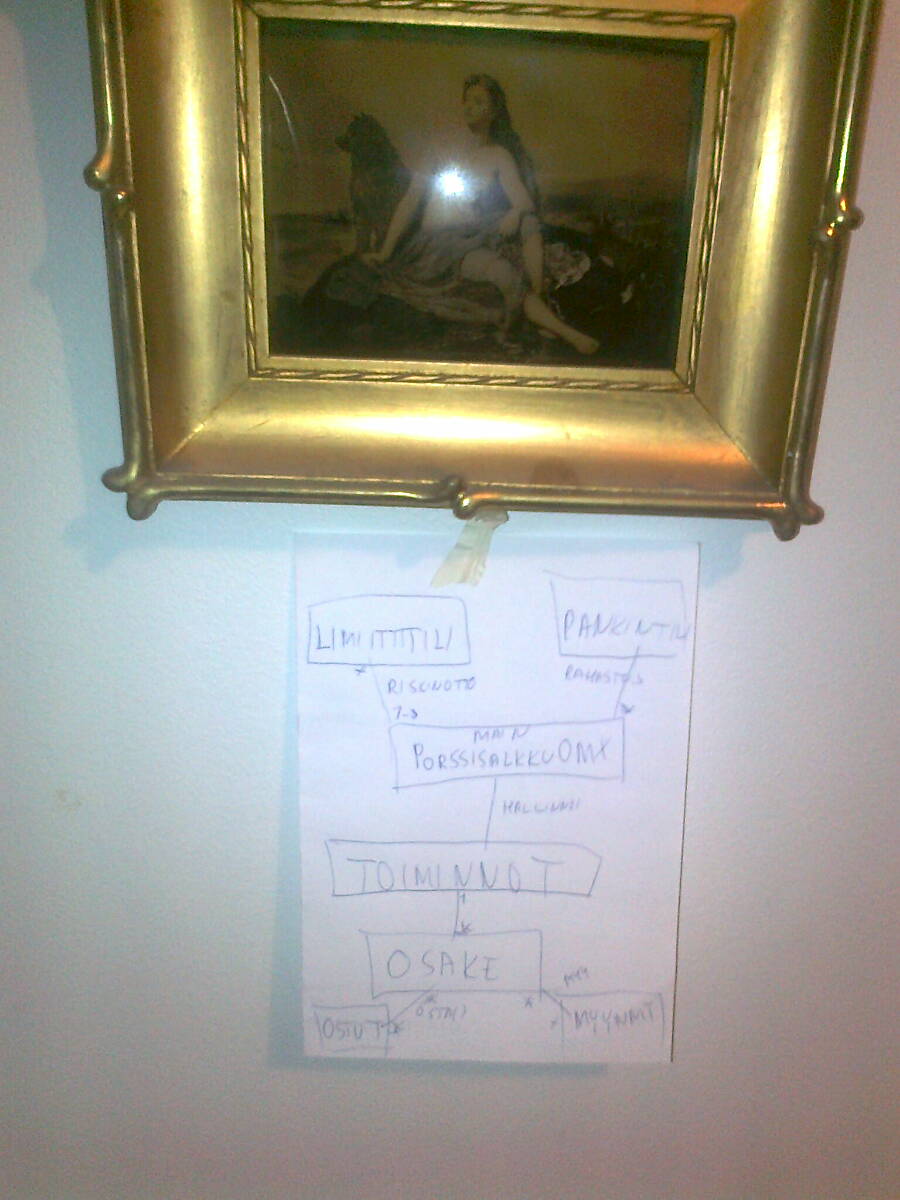 LIMIITTITILI
PANKINTILI
RISKINOTTO
RAHASTOIS
1-3
*
*
MAIN
PORSSISALKKUOMX
HALLINNOI
TOIMINNOT
1
*
OSAKE
MYY
*
*
OSTAJ
OSTOT
*
*
MYYNNIT